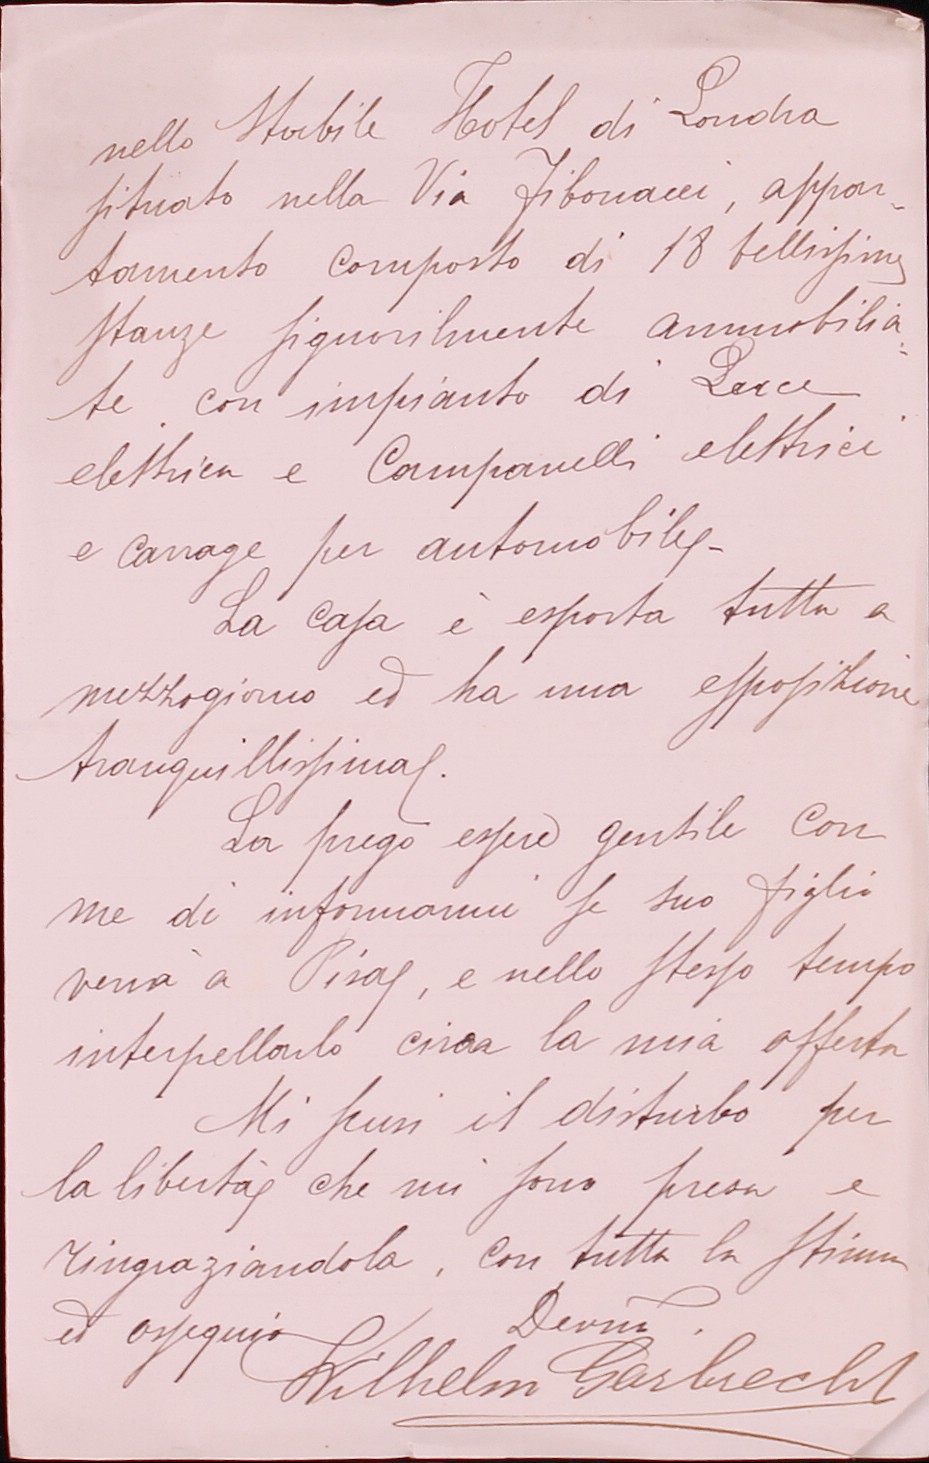 nello Stabile Hotel di Londra
situato nella Via Fibonacci, appar-
tamento composto di 18 bellissime
stanze signorilmente ammobilia-
te con impianto di Luce
elettrica e Campanelli elettrici
e Carrage per automobile-
La casa è esposta tutta a
mezzogiorno ed ha una esposizione
tranquillissima.
La prego essere gentile con
me di informarmi se suo figlio
verrà a Pisa, e nello stesso tempo
interpellarlo circa la mia offerta
Mi scusi il disturbo per
la libertà che mi sono presa e
ringraziandola, con tutta la stima
ed ossequio Devmo.
Wilhelm Garbrecht